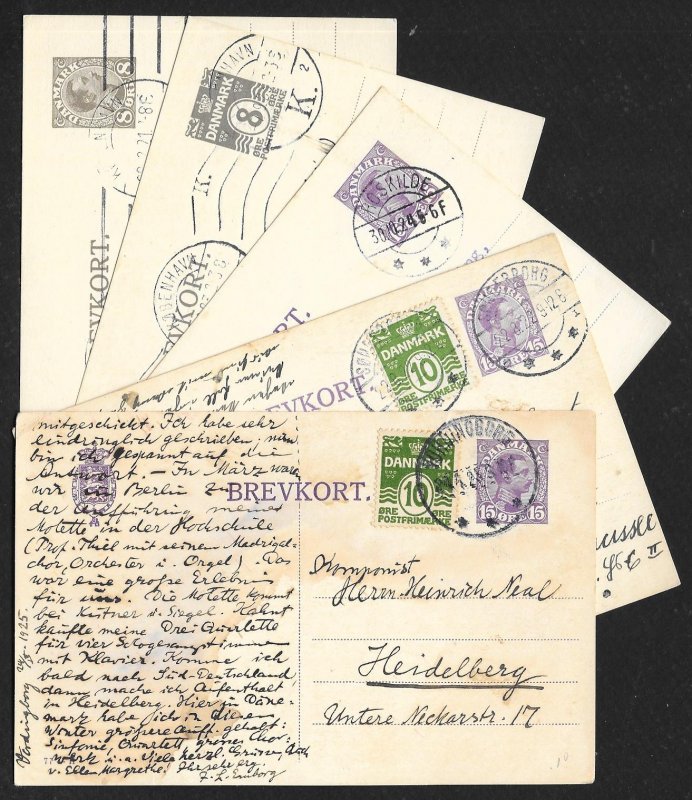 DANMARK
8 ØRE 8
BREVKORT.
KØBENHAVN
K.
DANMARK
8
ØRE ØRE
POSTFRIMÆRKE
KØBENHAVN
BREVKORT.
DANMARK
ROSKILDE
DANMARK
10
ØRE ØRE
POSTFRIMÆRKE
DANMARK
15 ØRE 15
BREVKORT.
mitgeschickt. Ich habe sehr
eindringlich geschrieben; nun
bin ich gespannt auf die
Antwort. – In März waren
wir in Berlin zu
der Aufführung meines
Motette in der Hochschule
(Prof. Thiel mit seinem Madrigal-
chor, Orchester u. Orgel). Das
war eine grosse Erlebnis
für uns. Die Motette kommt
bei Kistner u. Siegel. Hahnt
kaufte meine Drei Quartette
für vier Sologesangstimme
mit Klavier. Komme ich
bald nach Süd-Deutschland,
dann mache ich Aufenthalt
in Heidelberg. Hier zu Däne-
mark habe ich in diesem
Winter grössere Auff. gehabt:
Sinfonie, Quartett, grosses Chor-
werk u. a. Viele herzl. Grüsse, auch
v. Ellen Margrethe! Ihr sehr erg.
F. L. Emborg
Vordingborg 1925.
BREVKORT.
DANMARK
10
ØRE ØRE
POSTFRIMÆRKE
VORDINGBORG
DANMARK
15 ØRE 15
Komponist
Herrn Heinrich Neal
Heidelberg
Untere Neckarstr. 17